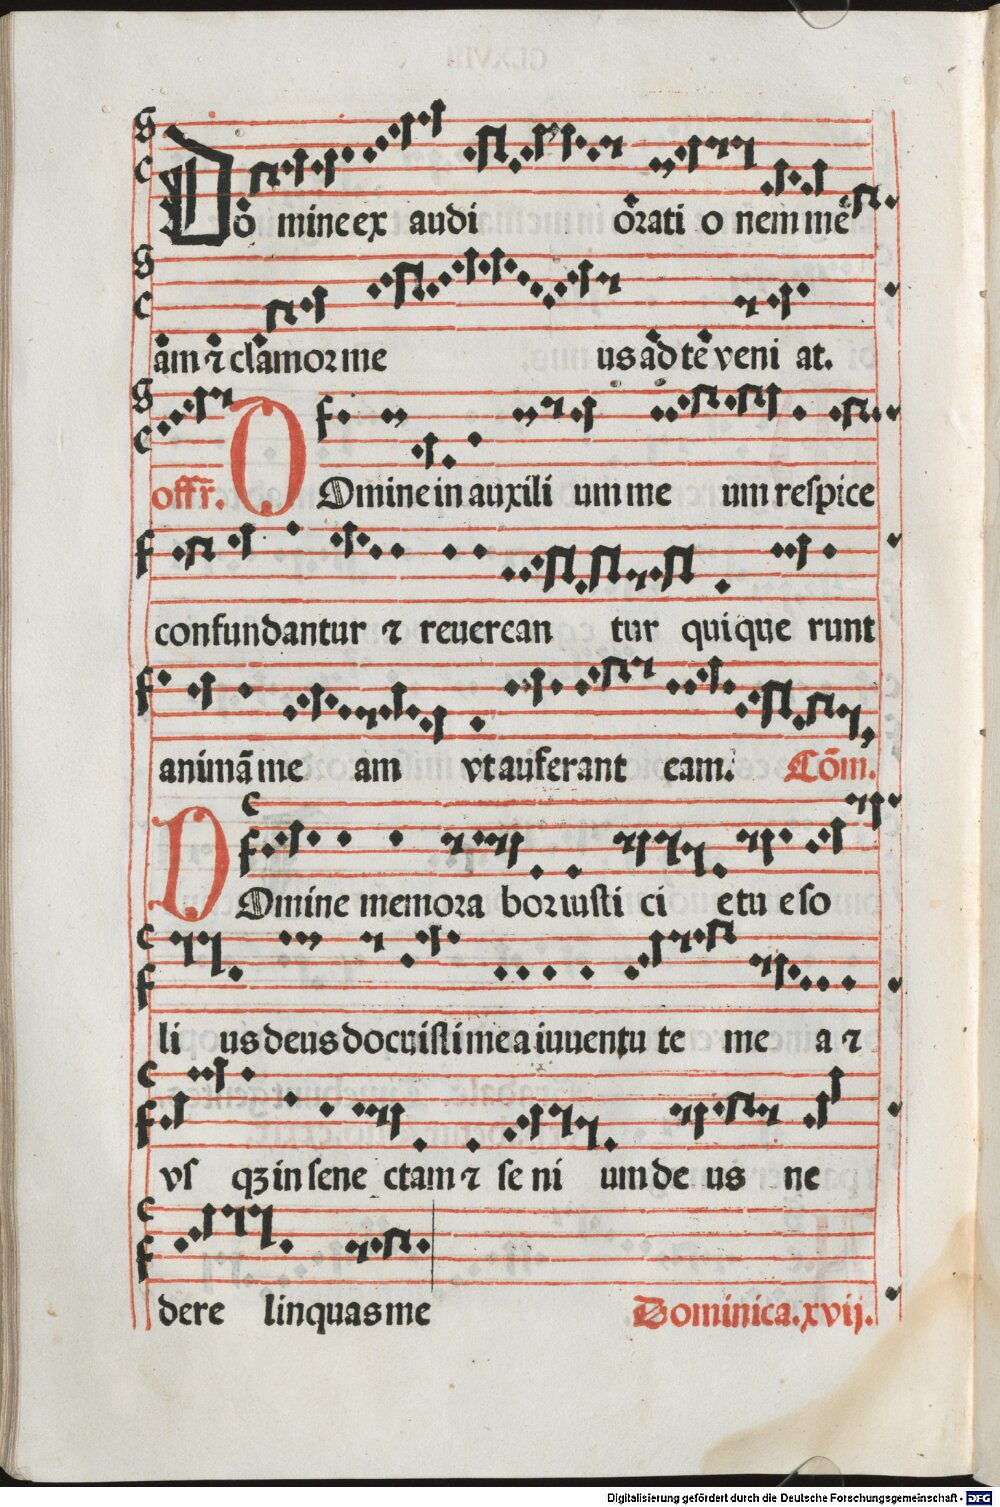 Dō mine ex audi ōrati o nem mē
ām ⁊ clāmor me us ād tē veni at.
offr̄. O Omine in auxili um me um respice
confundantur ⁊ reuerean tur qui que runt
animā me am vt auferant eam. Cōm.
D Omine memora bor iusti ci e tu e so
li us deus docuisti me a iuuentu te me a ⁊
vs qꝫ in sene ctam ⁊ se ni um de us ne
dere linquas me Dominica.xvij.
Digitalisierung gefördert durch die Deutsche Forschungsgemeinschaft - DFG